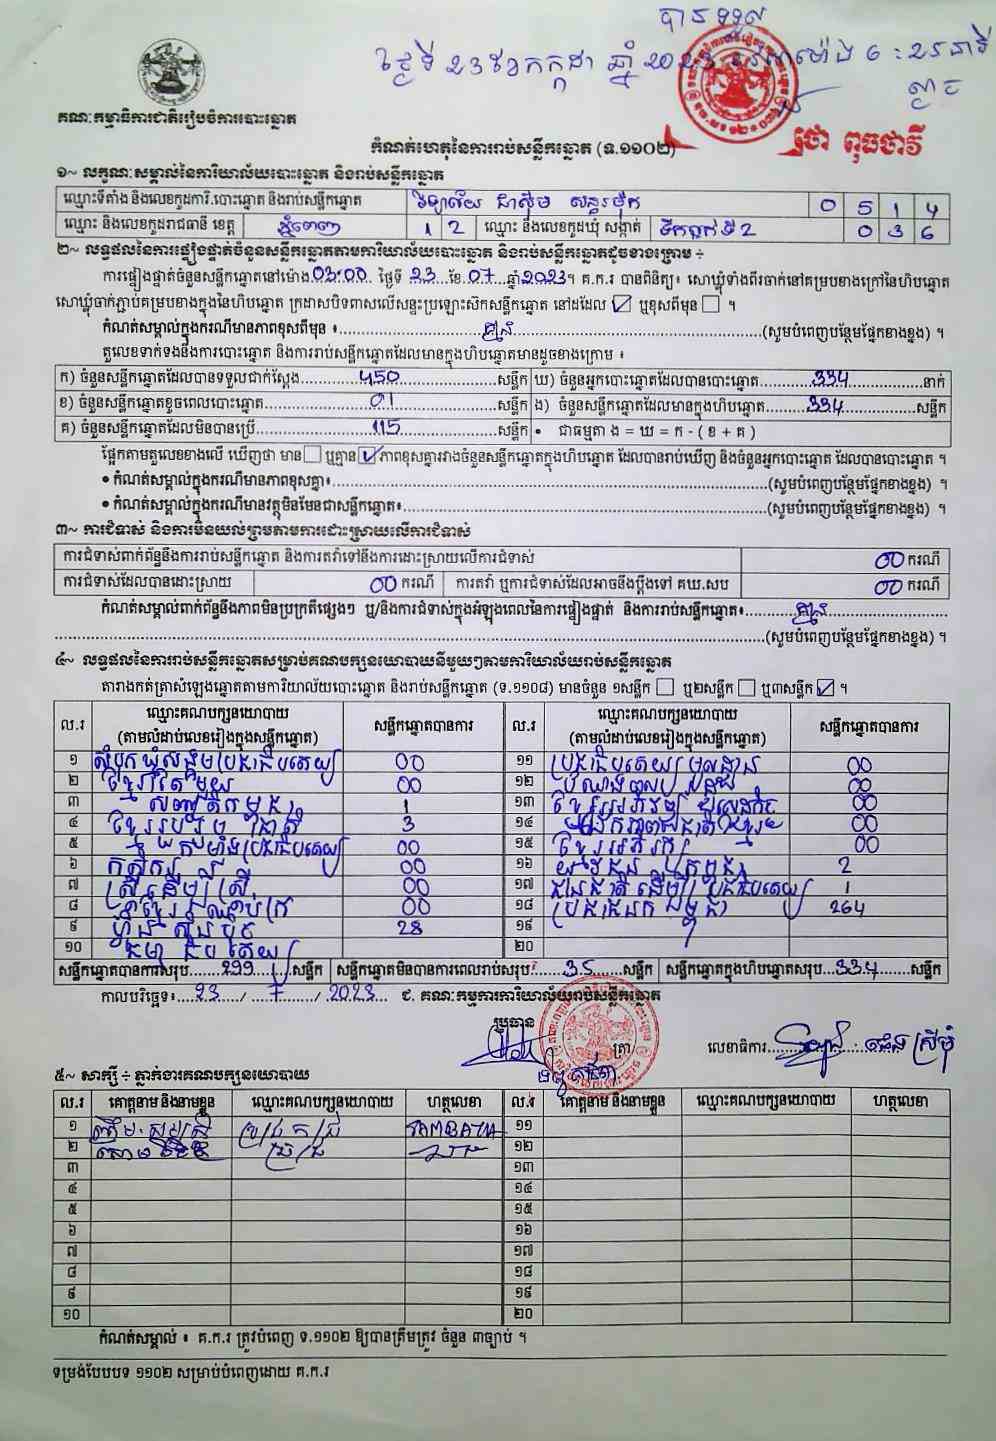 បានទទួល
ថ្ងៃទី 23 ខែកក្កដា ឆ្នាំ 2023
គណៈកម្មាធិការជាតិរៀបចំការបោះឆ្នោត
ថោ ពុធថាវី
កំណត់ហេតុនៃការរាប់សន្លឹកឆ្នោត (ទ.១១០២)
១~ លក្ខណៈសម្គាល់នៃការិយាល័យបោះឆ្នោត និងរាប់សន្លឹកឆ្នោត
ឈ្មោះទីតាំង និងលេខកូដការិ.បោះឆ្នោត និងរាប់សន្លឹកឆ្នោត វិទ្យាល័យ ជាស៊ីម សន្ធរម៉ុក 0 5 1 4
ឈ្មោះ និងលេខកូដរាជធានី ខេត្ត ភ្នំពេញ 1 2 ឈ្មោះ និងលេខកូដឃុំ សង្កាត់ ទឹកល្អក់ទី2 0 3 6
២~ លទ្ធផលនៃការផ្ទៀងផ្ទាត់ចំនួនសន្លឹកឆ្នោតតាមការិយាល័យបោះឆ្នោត និងរាប់សន្លឹកឆ្នោតដូចខាងក្រោម ÷
ការផ្ទៀងផ្ទាត់ចំនួនសន្លឹកឆ្នោតនៅម៉ោង 03:00 ថ្ងៃទី 23 ខែ 07 ឆ្នាំ 2023។ គ.ក.រ បានពិនិត្យ៖ សោឃ្លុំទាំងពីរចាក់នៅគម្របខាងក្រៅនៃហិបឆ្នោត
សោឃ្លុំចាក់ភ្ជាប់គម្របខាងក្នុងនៃហិបឆ្នោត ក្រដាសបិទពាសលើសន្ទះប្រឡោះស៊កសន្លឹកឆ្នោត នៅដដែល ☑ ឬខុសពីមុន ☐ ។
កំណត់សម្គាល់ក្នុងករណីមានភាពខុសពីមុន ៖ គ្មាន (សូមបំពេញបន្ថែមផ្នែកខាងខ្នង) ។
តួលេខទាក់ទងនឹងការបោះឆ្នោត និងការរាប់សន្លឹកឆ្នោតដែលមានក្នុងហិបឆ្នោតមានដូចខាងក្រោម ៖
ក) ចំនួនសន្លឹកឆ្នោតដែលបានទទួលជាក់ស្តែង 450 សន្លឹក ឃ) ចំនួនអ្នកបោះឆ្នោតដែលបានបោះឆ្នោត 334 នាក់
ខ) ចំនួនសន្លឹកឆ្នោតខូចពេលបោះឆ្នោត 01 សន្លឹក ង) ចំនួនសន្លឹកឆ្នោតដែលមានក្នុងហិបឆ្នោត 334 សន្លឹក
គ) ចំនួនសន្លឹកឆ្នោតដែលមិនបានប្រើ 115 សន្លឹក • ជាធម្មតា ង = ឃ = ក - ( ខ + គ )
ផ្អែកតាមតួលេខខាងលើ ឃើញថា មាន ☐ ឬគ្មាន ☑ ភាពខុសគ្នារវាងចំនួនសន្លឹកឆ្នោតក្នុងហិបឆ្នោត ដែលបានរាប់ឃើញ និងចំនួនអ្នកបោះឆ្នោត ដែលបានបោះឆ្នោត ។
• កំណត់សម្គាល់ក្នុងករណីមានភាពខុសគ្នា៖ (សូមបំពេញបន្ថែមផ្នែកខាងខ្នង) ។
• កំណត់សម្គាល់ក្នុងករណីមានវត្ថុមិនមែនជាសន្លឹកឆ្នោត៖ (សូមបំពេញបន្ថែមផ្នែកខាងខ្នង) ។
៣~ ការជំទាស់ និងការមិនយល់ព្រមតាមការដោះស្រាយលើការជំទាស់
ការជំទាស់ពាក់ព័ន្ធនឹងការរាប់សន្លឹកឆ្នោត និងការតវ៉ាទៅនឹងការដោះស្រាយលើការជំទាស់ 00 ករណី
ការជំទាស់ដែលបានដោះស្រាយ 00 ករណី ការតវ៉ា ឬការជំទាស់ដែលអាចនឹងប្តឹងទៅ គឃ.សប 00 ករណី
កំណត់សម្គាល់ពាក់ព័ន្ធនឹងភាពមិនប្រក្រតីផ្សេងៗ ឬ/និងការជំទាស់ក្នុងអំឡុងពេលនៃការផ្ទៀងផ្ទាត់ និងការរាប់សន្លឹកឆ្នោត៖ គ្មាន
(សូមបំពេញបន្ថែមផ្នែកខាងខ្នង) ។
៤~ លទ្ធផលនៃការរាប់សន្លឹកឆ្នោតសម្រាប់គណបក្សនយោបាយនីមួយៗតាមការិយាល័យរាប់សន្លឹកឆ្នោត
តារាងកត់ត្រាសំឡេងឆ្នោតតាមការិយាល័យបោះឆ្នោត និងរាប់សន្លឹកឆ្នោត (ទ.១១០៨) មានចំនួន ១សន្លឹក ☐ ឬ២សន្លឹក ☐ ឬ៣សន្លឹក ☑ ។
ល.រ ឈ្មោះគណបក្សនយោបាយ (តាមលំដាប់លេខរៀងក្នុងសន្លឹកឆ្នោត) សន្លឹកឆ្នោតបានការ ល.រ ឈ្មោះគណបក្សនយោបាយ (តាមលំដាប់លេខរៀងក្នុងសន្លឹកឆ្នោត) សន្លឹកឆ្នោតបានការ
១ សំបុកឃ្មុំសង្គមប្រជាធិបតេយ្យ 00 ១១ ប្រជាធិបតេយ្យមូលដ្ឋាន 00
២ ខ្មែរតែមួយ 00 ១២ 00
៣ កម្ពុជា 1 ១៣ 00
៤ ខ្មែររួបរួមជាតិ 3 ១៤ 00
៥ យុវកម្លាំងប្រជាធិបតេយ្យ 00 ១៥ 00
៦ កសិករ 00 ១៦ 2
៧ ស្រ្តីដើម្បីស្រ្តី 00 ១៧ 1
៨ 00 ១៨ ប្រជាជនកម្ពុជា 264
៩ ហ៊្វុនស៊ិនប៉ិច 28 ១៩
១០ 20
សន្លឹកឆ្នោតបានការសរុប 299 សន្លឹក សន្លឹកឆ្នោតមិនបានការពេលរាប់សរុប 35 សន្លឹក សន្លឹកឆ្នោតក្នុងហិបឆ្នោតសរុប 334 សន្លឹក
កាលបរិច្ឆេទ៖ 23 / 7 / 2023 ជ. គណៈកម្មការការិយាល័យរាប់សន្លឹកឆ្នោត
ប្រធាន
ត្រា លេខាធិការ
៥~ សាក្សី ÷ ភ្នាក់ងារគណបក្សនយោបាយ
ល.រ គោត្តនាម និងនាមខ្លួន ឈ្មោះគណបក្សនយោបាយ ហត្ថលេខា ល.រ គោត្តនាម និងនាមខ្លួន ឈ្មោះគណបក្សនយោបាយ ហត្ថលេខា
១ ១១
២ ១២
៣ ១៣
៤ ១៤
៥ ១៥
៦ ១៦
៧ ១៧
៨ ១៨
៩ ១៩
១០ 20
កំណត់សម្គាល់ ៖ គ.ក.រ ត្រូវបំពេញ ទ.១១០២ ឱ្យបានត្រឹមត្រូវ ចំនួន ៣ច្បាប់ ។
ទម្រង់បែបបទ ១១០២ សម្រាប់បំពេញដោយ គ.ក.រ